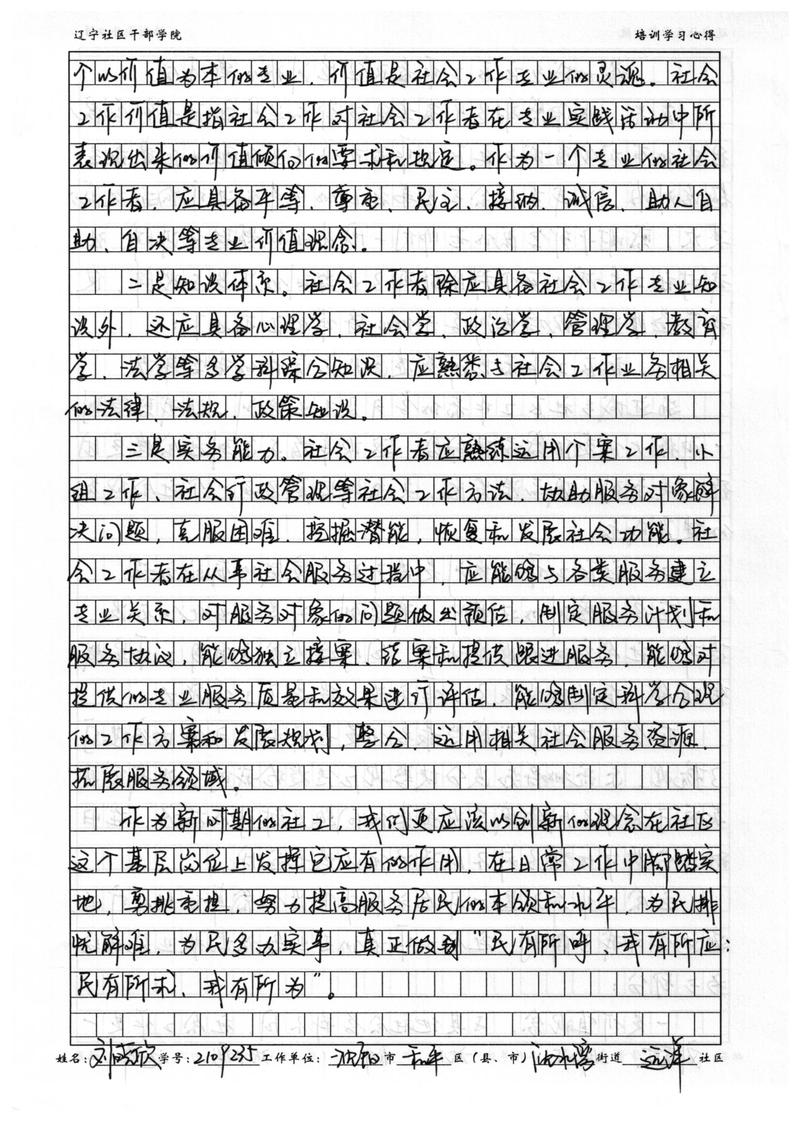 辽宁社区干部学院 培训学习心得
个以价值为本的专业，价值是社会工作专业的灵魂。社会
工作价值是指社会工作对社会工作者在专业实践活动中所
表现出来的价值倾向的要求和规定。作为一个专业的社会
工作者，应具备平等、尊重、民主、接纳、诚信、助人自
助、自决等专业价值观念。
二是知识体系。社会工作者除应具备社会工作专业知
识外，还应具备心理学、社会学、政治学、管理学、教育
学、法学等多学科综合知识，应熟悉与社会工作业务相关
的法律、法规、政策知识。
三是实务能力。社会工作者应熟练运用个案工作、小
组工作、社会行政管理等社会工作方法，协助服务对象解
决问题，克服困难，挖掘潜能，恢复和发展社会功能。社
会工作者在从事社会服务过程中，应能够与各类服务建立
专业关系，对服务对象的问题做出预估，制定服务计划和
服务协议，能够独立接案、结案和提供跟进服务，能够对
提供的专业服务质量和效果进行评估，能够制定科学合理
的工作方案和发展规划，整合、运用相关社会服务资源，
拓展服务领域。
作为新时期的社工，我们更应该以创新的观念在社区
这个基层岗位上发挥它应有的作用，在日常工作中脚踏实
地，勇挑重担，努力提高服务居民的本领和水平，为民排
忧解难，为民多办实事，真正做到“民有所呼、我有所应；
民有所求、我有所为”。
姓名：刘欣 学号：2109235 工作单位：沈阳市 和平 区（县、市） 浑水湾 街道 远洋 社区